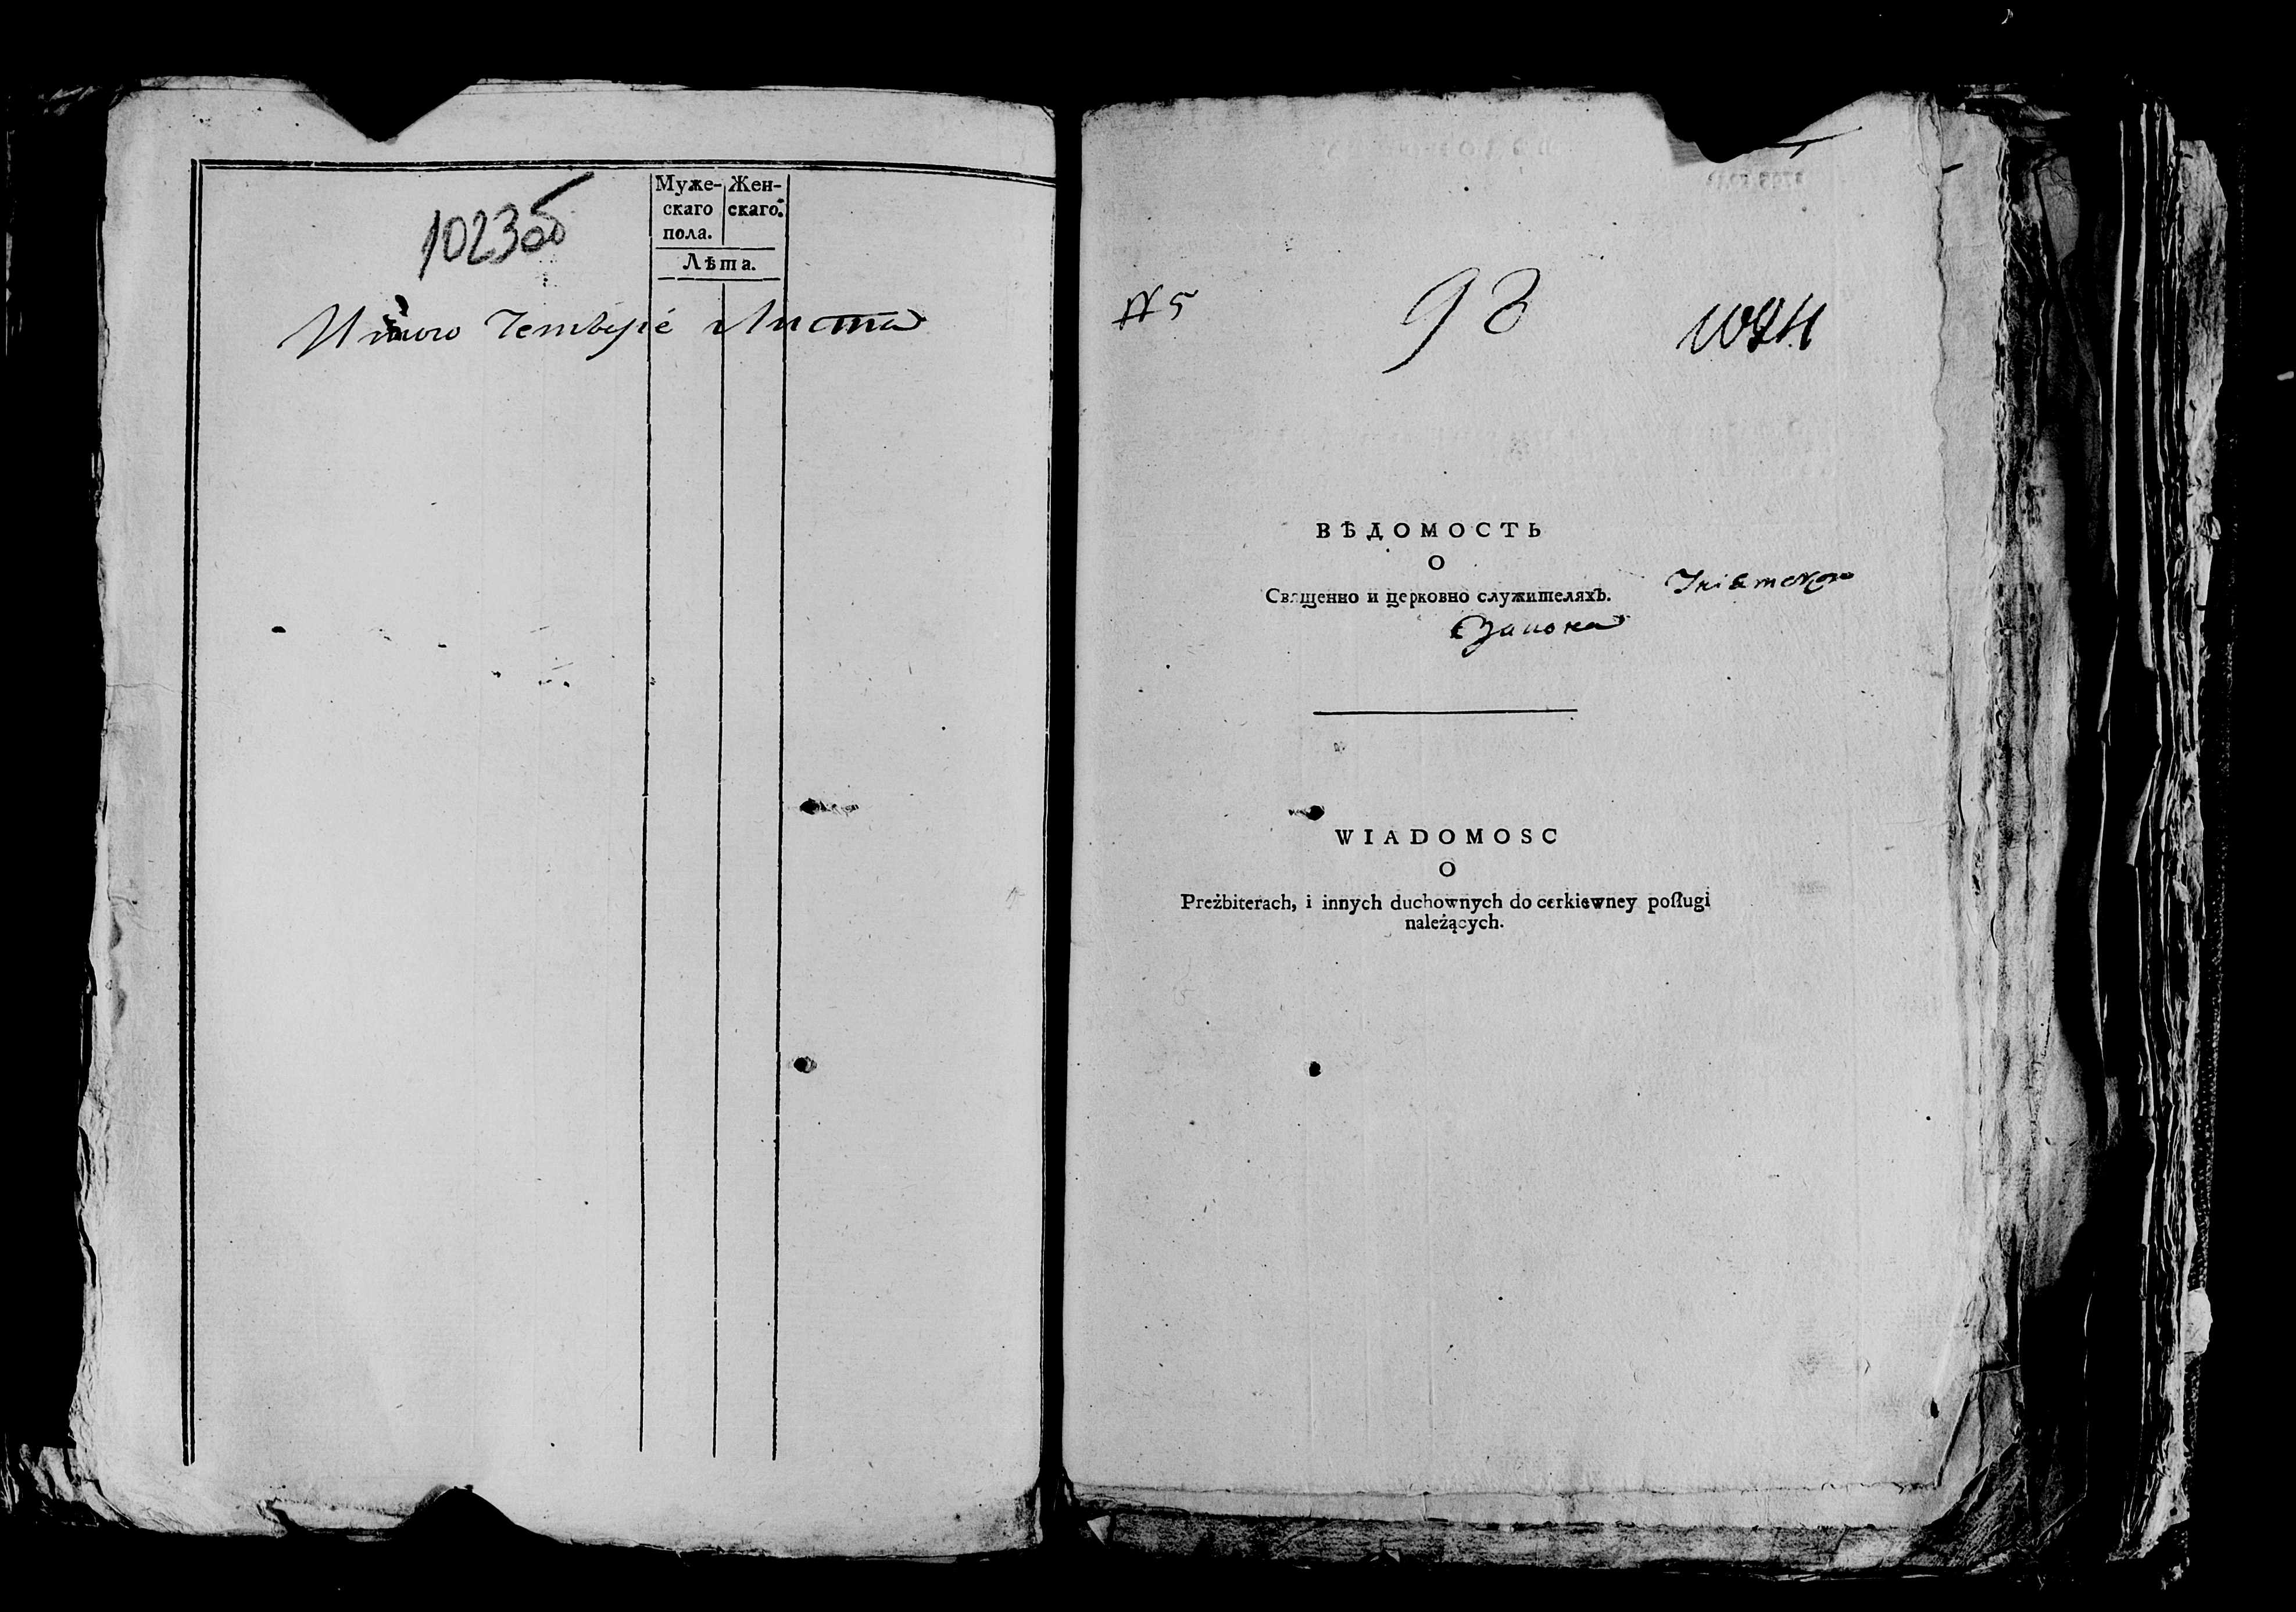 1023об
Муже- Жен-
скаго скаго.
пола.
Лѣта.
Итого Четыре Листа
№ 5
98
1024
ВѢДОМОСТЬ
О
Священно и церковно служителяхъ. Унiатского
Закона
WIADOMOSC
O
Preżbiterach, i innych duchownych do cerkiewney poſługi
należących.